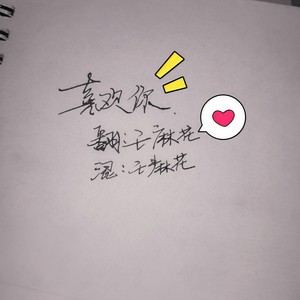 喜欢你.
翻:王麻花
混:王麻花